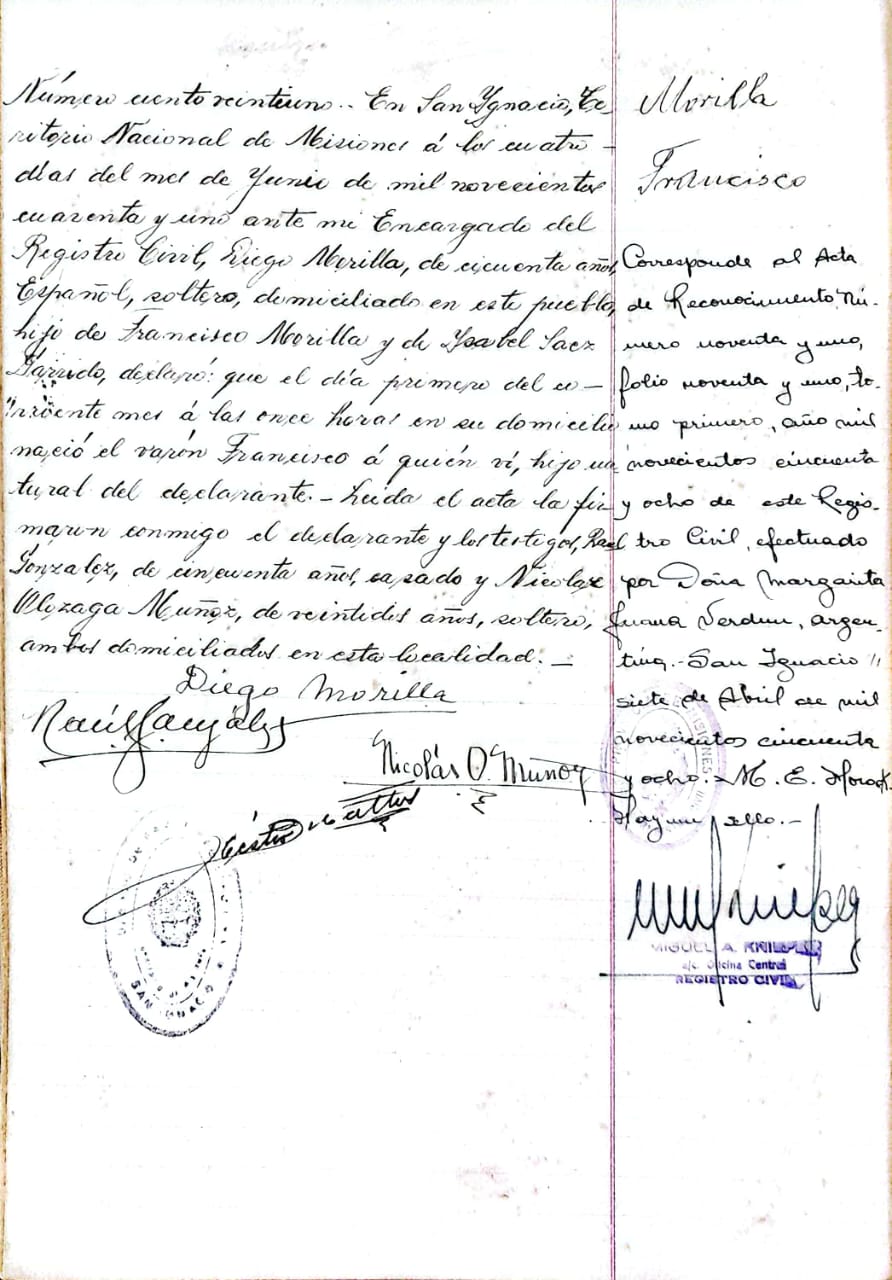 Número ciento veintiuno.. En San Ygnacio, Te-
rritorio Nacional de Misiones á los cuatro -
días del mes de Junio de mil novecientos
cuarenta y uno ante mi Encargado del
Registro Civil, Diego Morilla, de cicuenta años,
Español, soltero, domiciliado en este pueblo,
hijo de Francisco Morilla y de Ysabel Saez
Garrido, declaró: que el día primero del co-
rriente mes á las once horas en su domicilio
nació el varón Francisco á quién ví, hijo na
tural del declarante.- Leida el acta la fir
maron conmigo el declarante y los testigos, Raul
Gonzalez, de cincuenta años, casado y Nicolas
Olezaga Muñoz, de veintidos años, soltero,
ambos domiciliados en esta localidad. -
Diego Morilla
Raúl González
Nicolás O. Muñoz
SAN IGNACIO
Morilla
Francisco
Corresponde al Acta
de Reconocimiento Nú-
mero noventa y uno,
folio noventa y uno, to-
mo primero, año mil
novecientos cincuenta
y ocho de este Regis-
tro Civil, efectuado
por Doña Margarita
Juana Verdun, argen-
tina.- San Ignacio
siete de Abril de mil
novecientos cincuenta
y ocho.- M. E.
Hay un sello.-
MISIONES
MIGUEL A.
a/c. Oficina Central
REGISTRO CIVIL